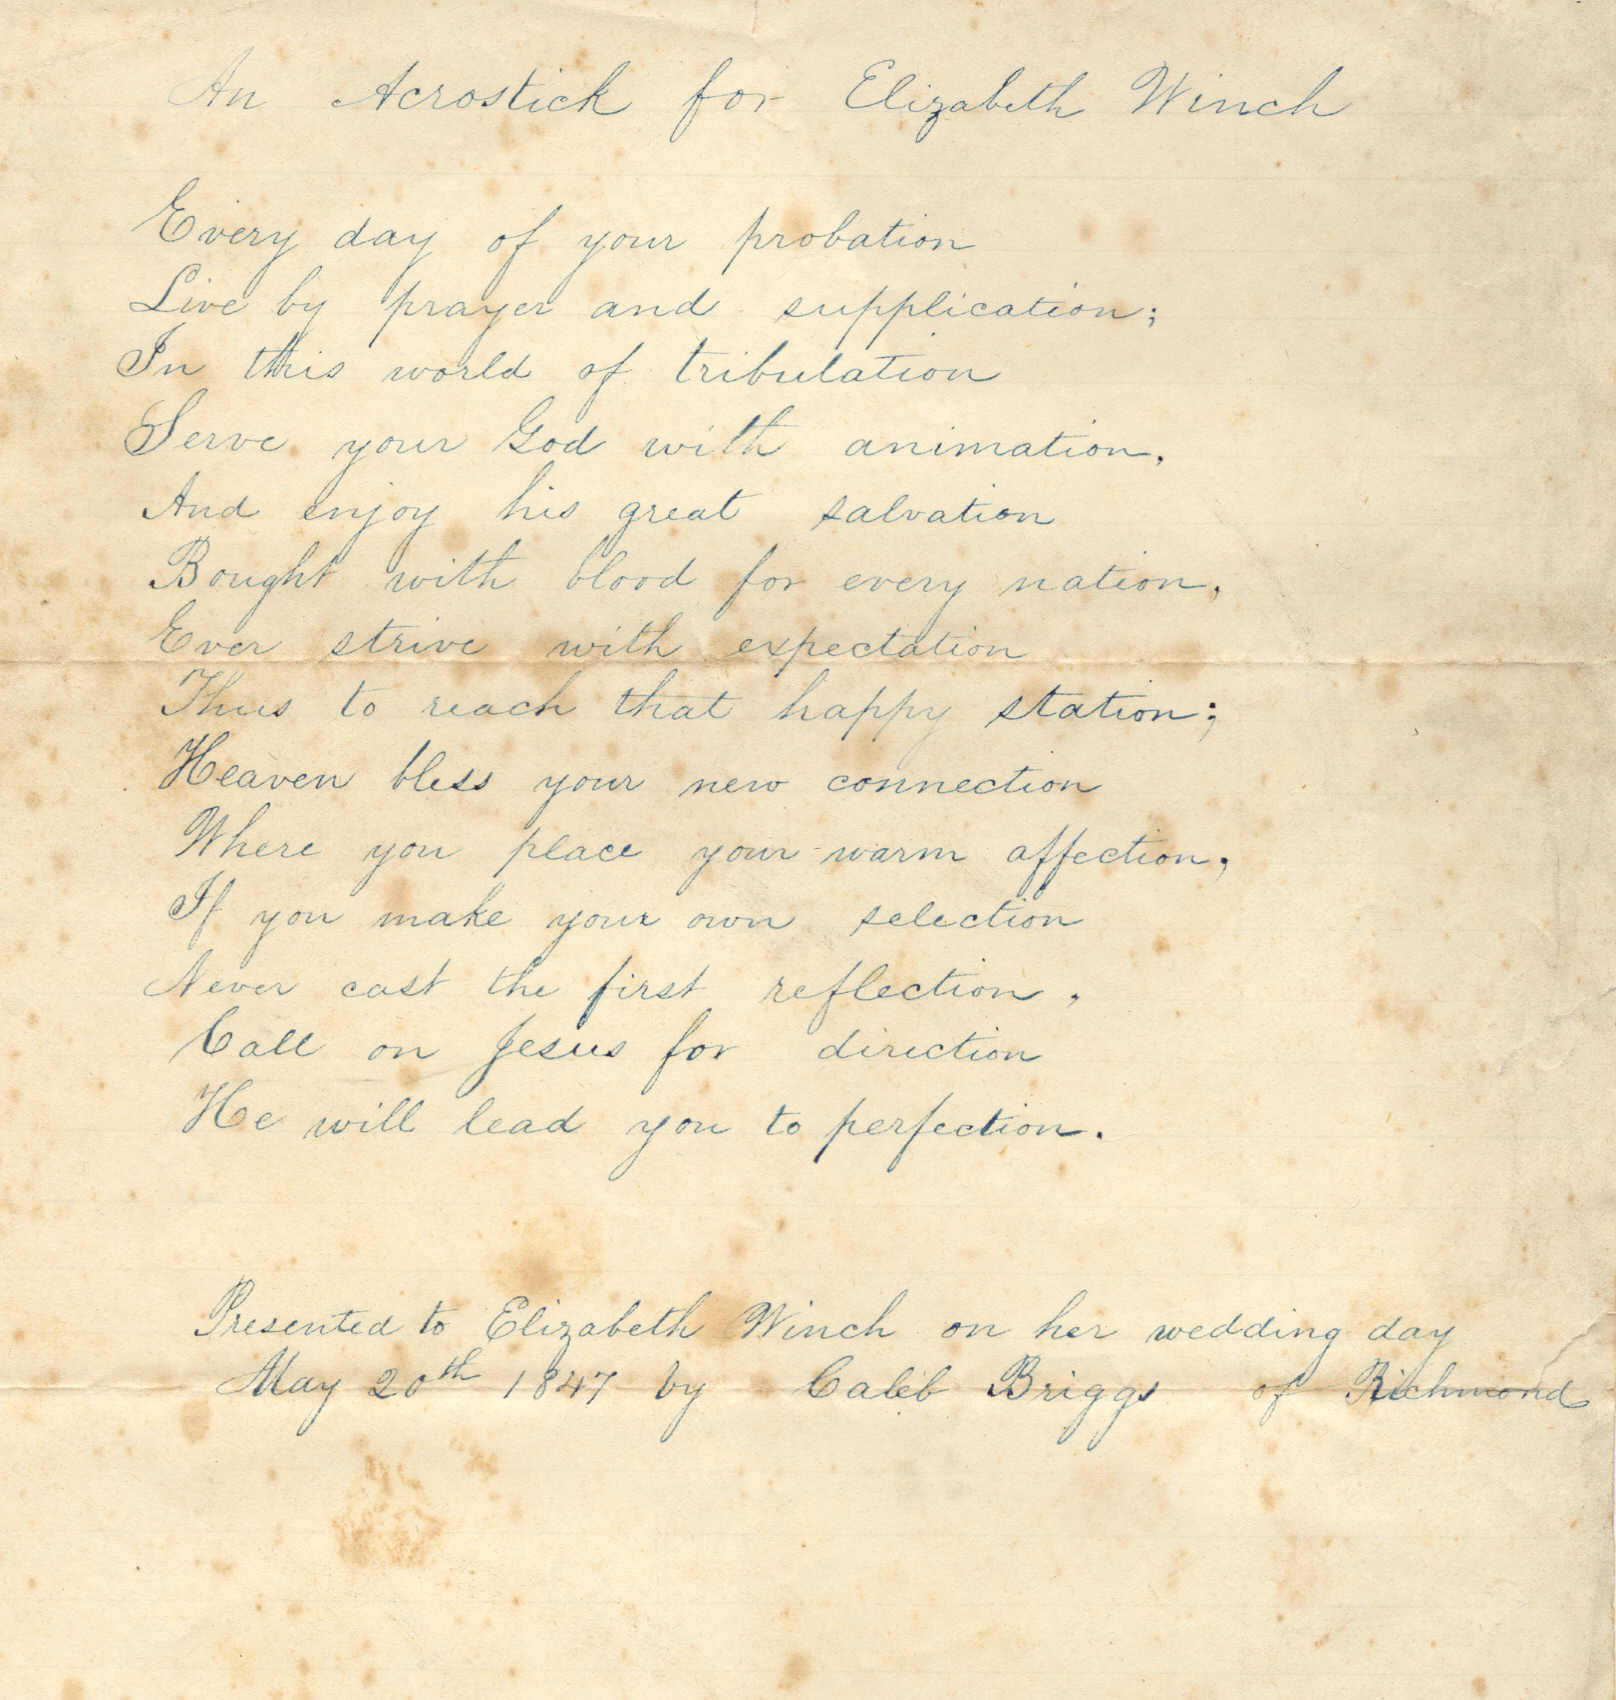 An Acrostick for Elizabeth Winch
Every day of your probation
Live by prayer and supplication;
In this world of tribulation
Serve your God with animation,
And enjoy his great salvation
Bought with blood for every nation,
Ever strive with expectation
Thus to reach that happy station;
Heaven bless your new connection
Where you place your warm affection,
If you make your own selection
Never cast the first reflection,
Call on Jesus for direction
He will lead you to perfection.
Presented to Elizabeth Winch on her wedding day
May 20th 1847 by Caleb Briggs of Richmond